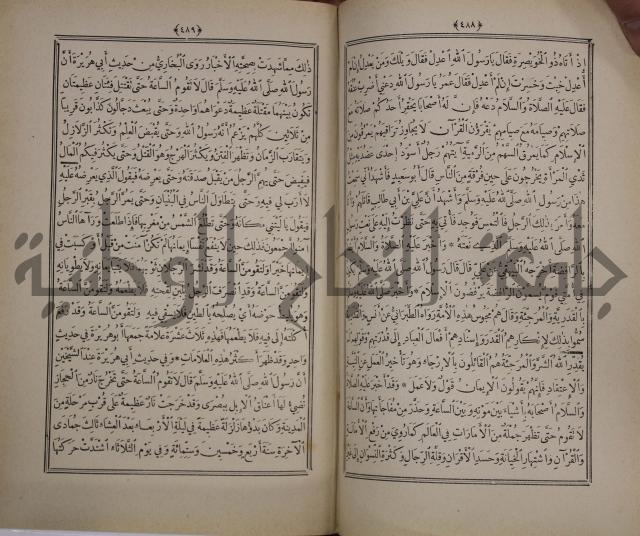 ﴿٤٨٨﴾
اذ أتاه ذو الخويصرة فقال يا رسول الله اعدل فقال ويلك ومن يعدل إن لم
أعدل خبت وخسرت إن لم أعدل فقال عمر يا رسول الله دعني أضرب عنقه
فقال عليه الصلاة والسلام دعه فإن له أصحابا يحقر أحدكم صلاته مع
صلاتهم وصيامه مع صيامهم يقرؤن القرآن لا يجاوز تراقيهم يمرقون من
الإسلام كما يمرق السهم من الرمية آيتهم رجل أسود إحدى عضديه مثل
ثدي المرأة يخرجون على حين فرقة من الناس قال أبو سعيد فأشهد أني سمعت
هذا من رسول الله صلى الله عليه وسلم وأشهد أن علي بن أبي طالب قاتلهم وأنا
معه وأمر بذلك الرجل فالتمس فوجد فأتي به حتى نظرت إليه على نعت رسول
الله صلى الله عليه وسلم الذي نعته وأخبر عليه الصلاة والسلام
بالرافضة أخرجه البيهقي عن علي قال قال رسول الله صلى الله عليه وسلم يكون
في أمتي قوم يسمون الرافضة يرفضون الإسلام وأخبر
بالقدرية والمرجئة وقال هم مجوس هذه الأمة رواه الطبراني عن أنس والقدرية
سموا بذلك لإنكارهم القدر وإسنادهم أفعال العباد إلى قدرتهم وقولهم
يقدر الله الشر والمرجئة هم القائلون بالإرجاء وهو تأخير العمل عن النية
والاعتقاد فإنهم يقولون الإيمان قول ولا عمل وقد أخبر عليه الصلاة
والسلام أصحابه بأشياء بين موته وبين الساعة وحذر من مفاجأتها وأن الساعة
لا تقوم حتى تظهر جملة من الأمارات في العالم كما روي من رفع الأمانة
والقرآن واشتهار الخيانة وحسد الأقران وقلة الرجال وكثرة النسوان إلى غير
﴿٤٨٩﴾
ذلك مما شهدت بصحته الأخبار روى البخاري من حديث أبي هريرة أن
رسول الله صلى الله عليه وسلم قال لا تقوم الساعة حتى تقتتل فئتان عظيمتان
تكون بينهما مقتلة عظيمة دعواهما واحدة وحتى يبعث دجالون كذابون قريبا
من ثلاثين كلهم يزعم أنه رسول الله وحتى يقبض العلم وتكثر الزلازل
ويتقارب الزمان وتظهر الفتن ويكثر الهرج وهو القتل وحتى يكثر فيكم المال
فيفيض حتى يهم الرجل من يقبل صدقته وحتى يعرضه فيقول الذي يعرضه عليه
لا أرب لي فيه وحتى يتطاول الناس في البنيان وحتى يمر الرجل بقبر الرجل
ويقول يا ليتني مكانه وحتى تطلع الشمس من مغربها فإذا طلعت ورآها الناس
آمنوا أجمعون فذلك حين لا ينفع نفسا إيمانها لم تكن آمنت من قبل أو كسبت في
إيمانها خيرا ولتقومن الساعة وقد نشر الرجلان ثوبهما بينهما فلا يتبايعانه ولا يطويانه
ولتقومن الساعة وقد انصرف الرجل بلبن لقحته فلا يطعمه ولتقومن الساعة
وهو يليط حوضه أي يصلحه بالطين فلا يسقي فيه ولتقومن الساعة وقد رفع
أكلته إلى فيه فلا يطعمها فهذه ثلاث عشرة علامة جمعها أبو هريرة في حديث
واحد وقد ظهر أكثر هذه العلامات وفي حديث أبي هريرة عند الشيخين
أن رسول الله صلى الله عليه وسلم قال لا تقوم الساعة حتى تخرج نار من الحجاز
تضيء لها أعناق الإبل ببصرى وقد خرجت نار عظيمة على قرب مرحلة من
المدينة وكان بدؤها زلزلة عظيمة في ليلة الأربعاء بعد العشاء ثالث جمادى
الآخرة سنة أربع وخمسين وستمائة وفي يوم الثلاثاء اشتدت حركتها
جامعة النجاح الوطنية